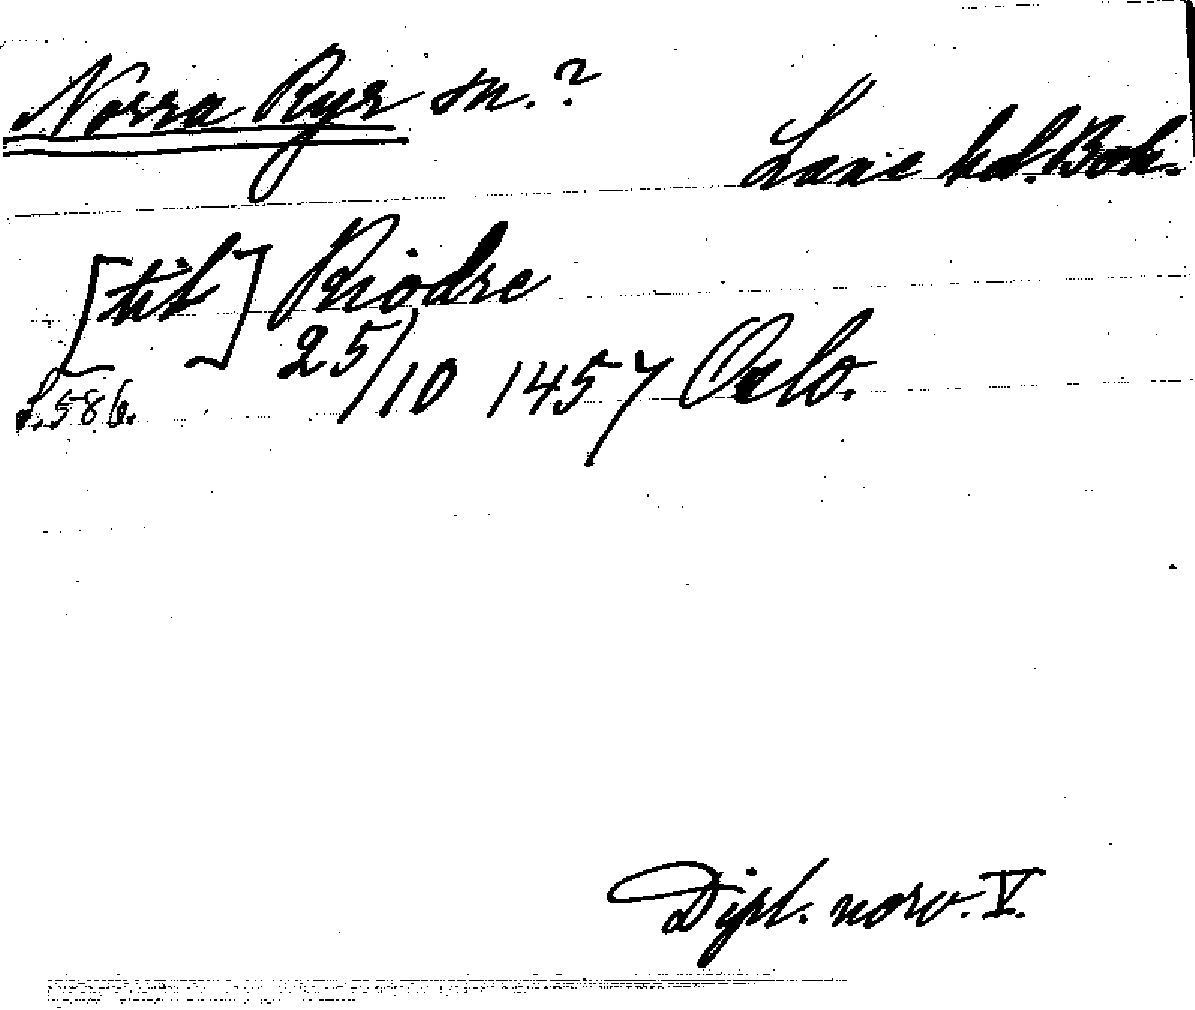 Norra Ryr sn.?
Lane hd. Boh.
[til] Riodre
25/10 1457 Oslo.
S. 586.
Dipl. norv. V.